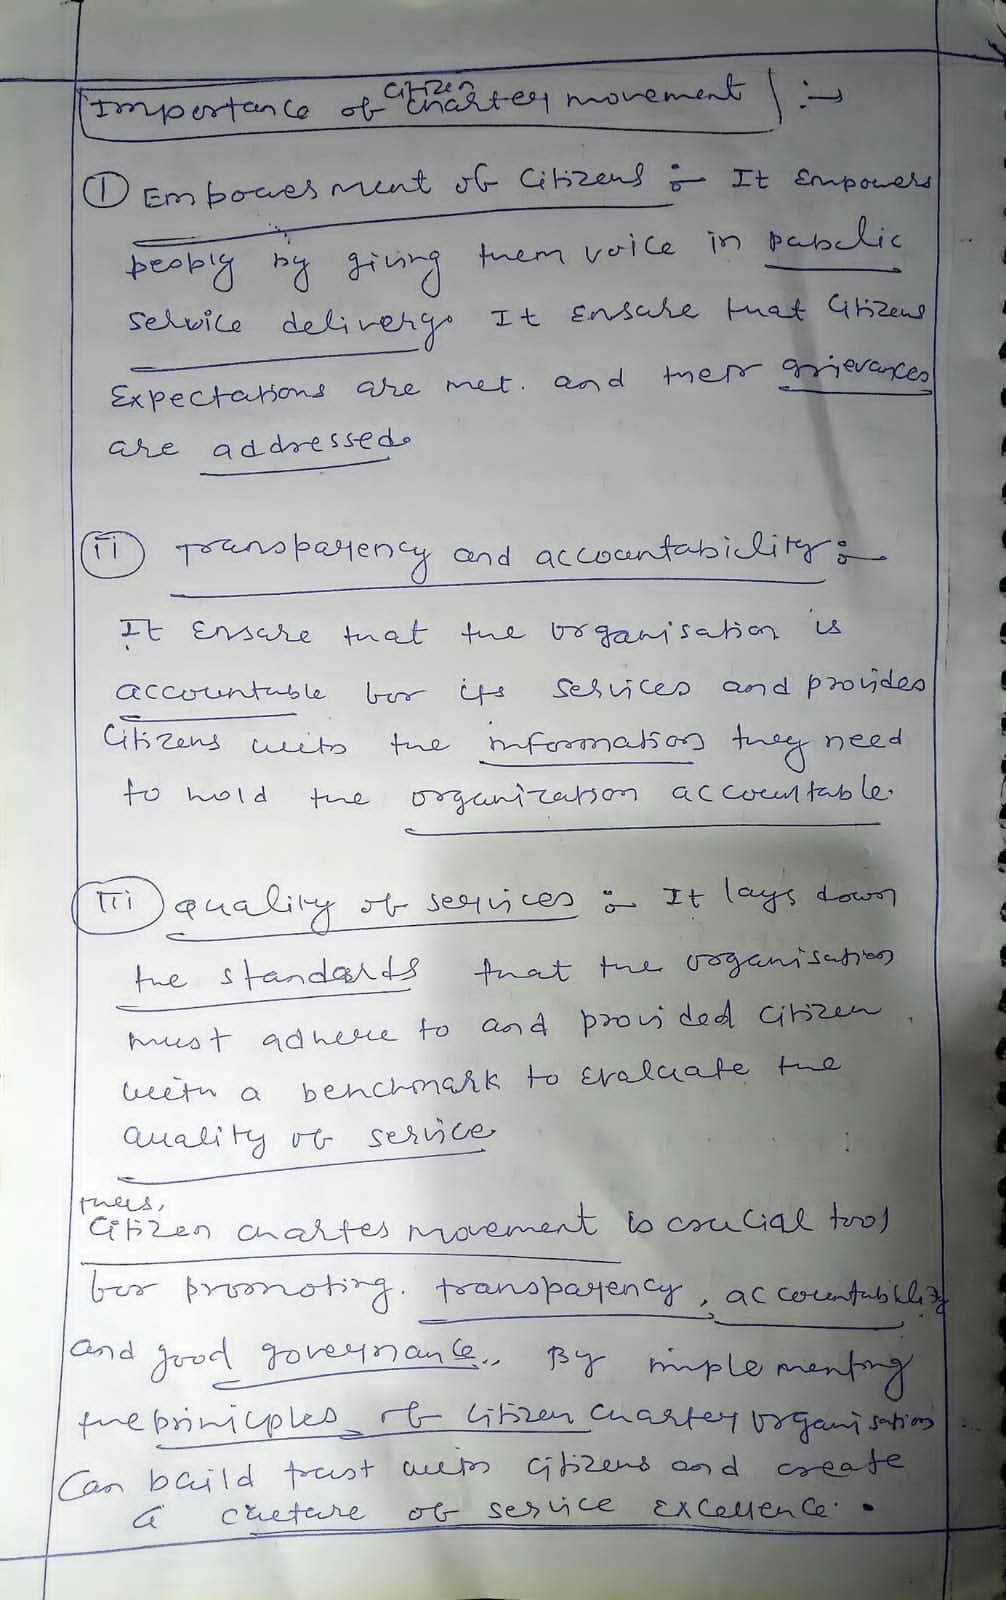 Importance of citizen charter movement :→
① Empowerment of citizens :- It empowers
people by giving them voice in public
service delivery. It ensure that citizens
expectations are met. and their grievances
are addressed.
ii Transparency and accountability :-
It ensure that the organisation is
accountable for its services and provides
citizens with the information they need
to hold the organization accountable.
iii quality of services :- It lays down
the standards that the organisation
must adhere to and provided citizen
with a benchmark to evaluate the
quality of service.
thus,
Citizen charter movement is crucial tool
for promoting. transparency, accountability
and good governance. By implementing
the priniciples of citizen charter organisation
can build trust with citizens and create
a culture of service excellence.